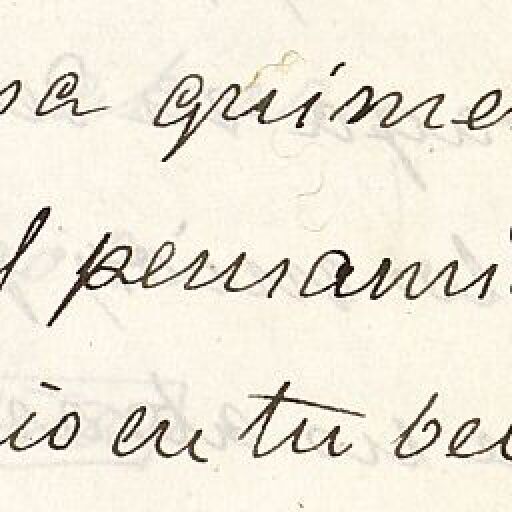 sa quime
l pensami
io en tu be